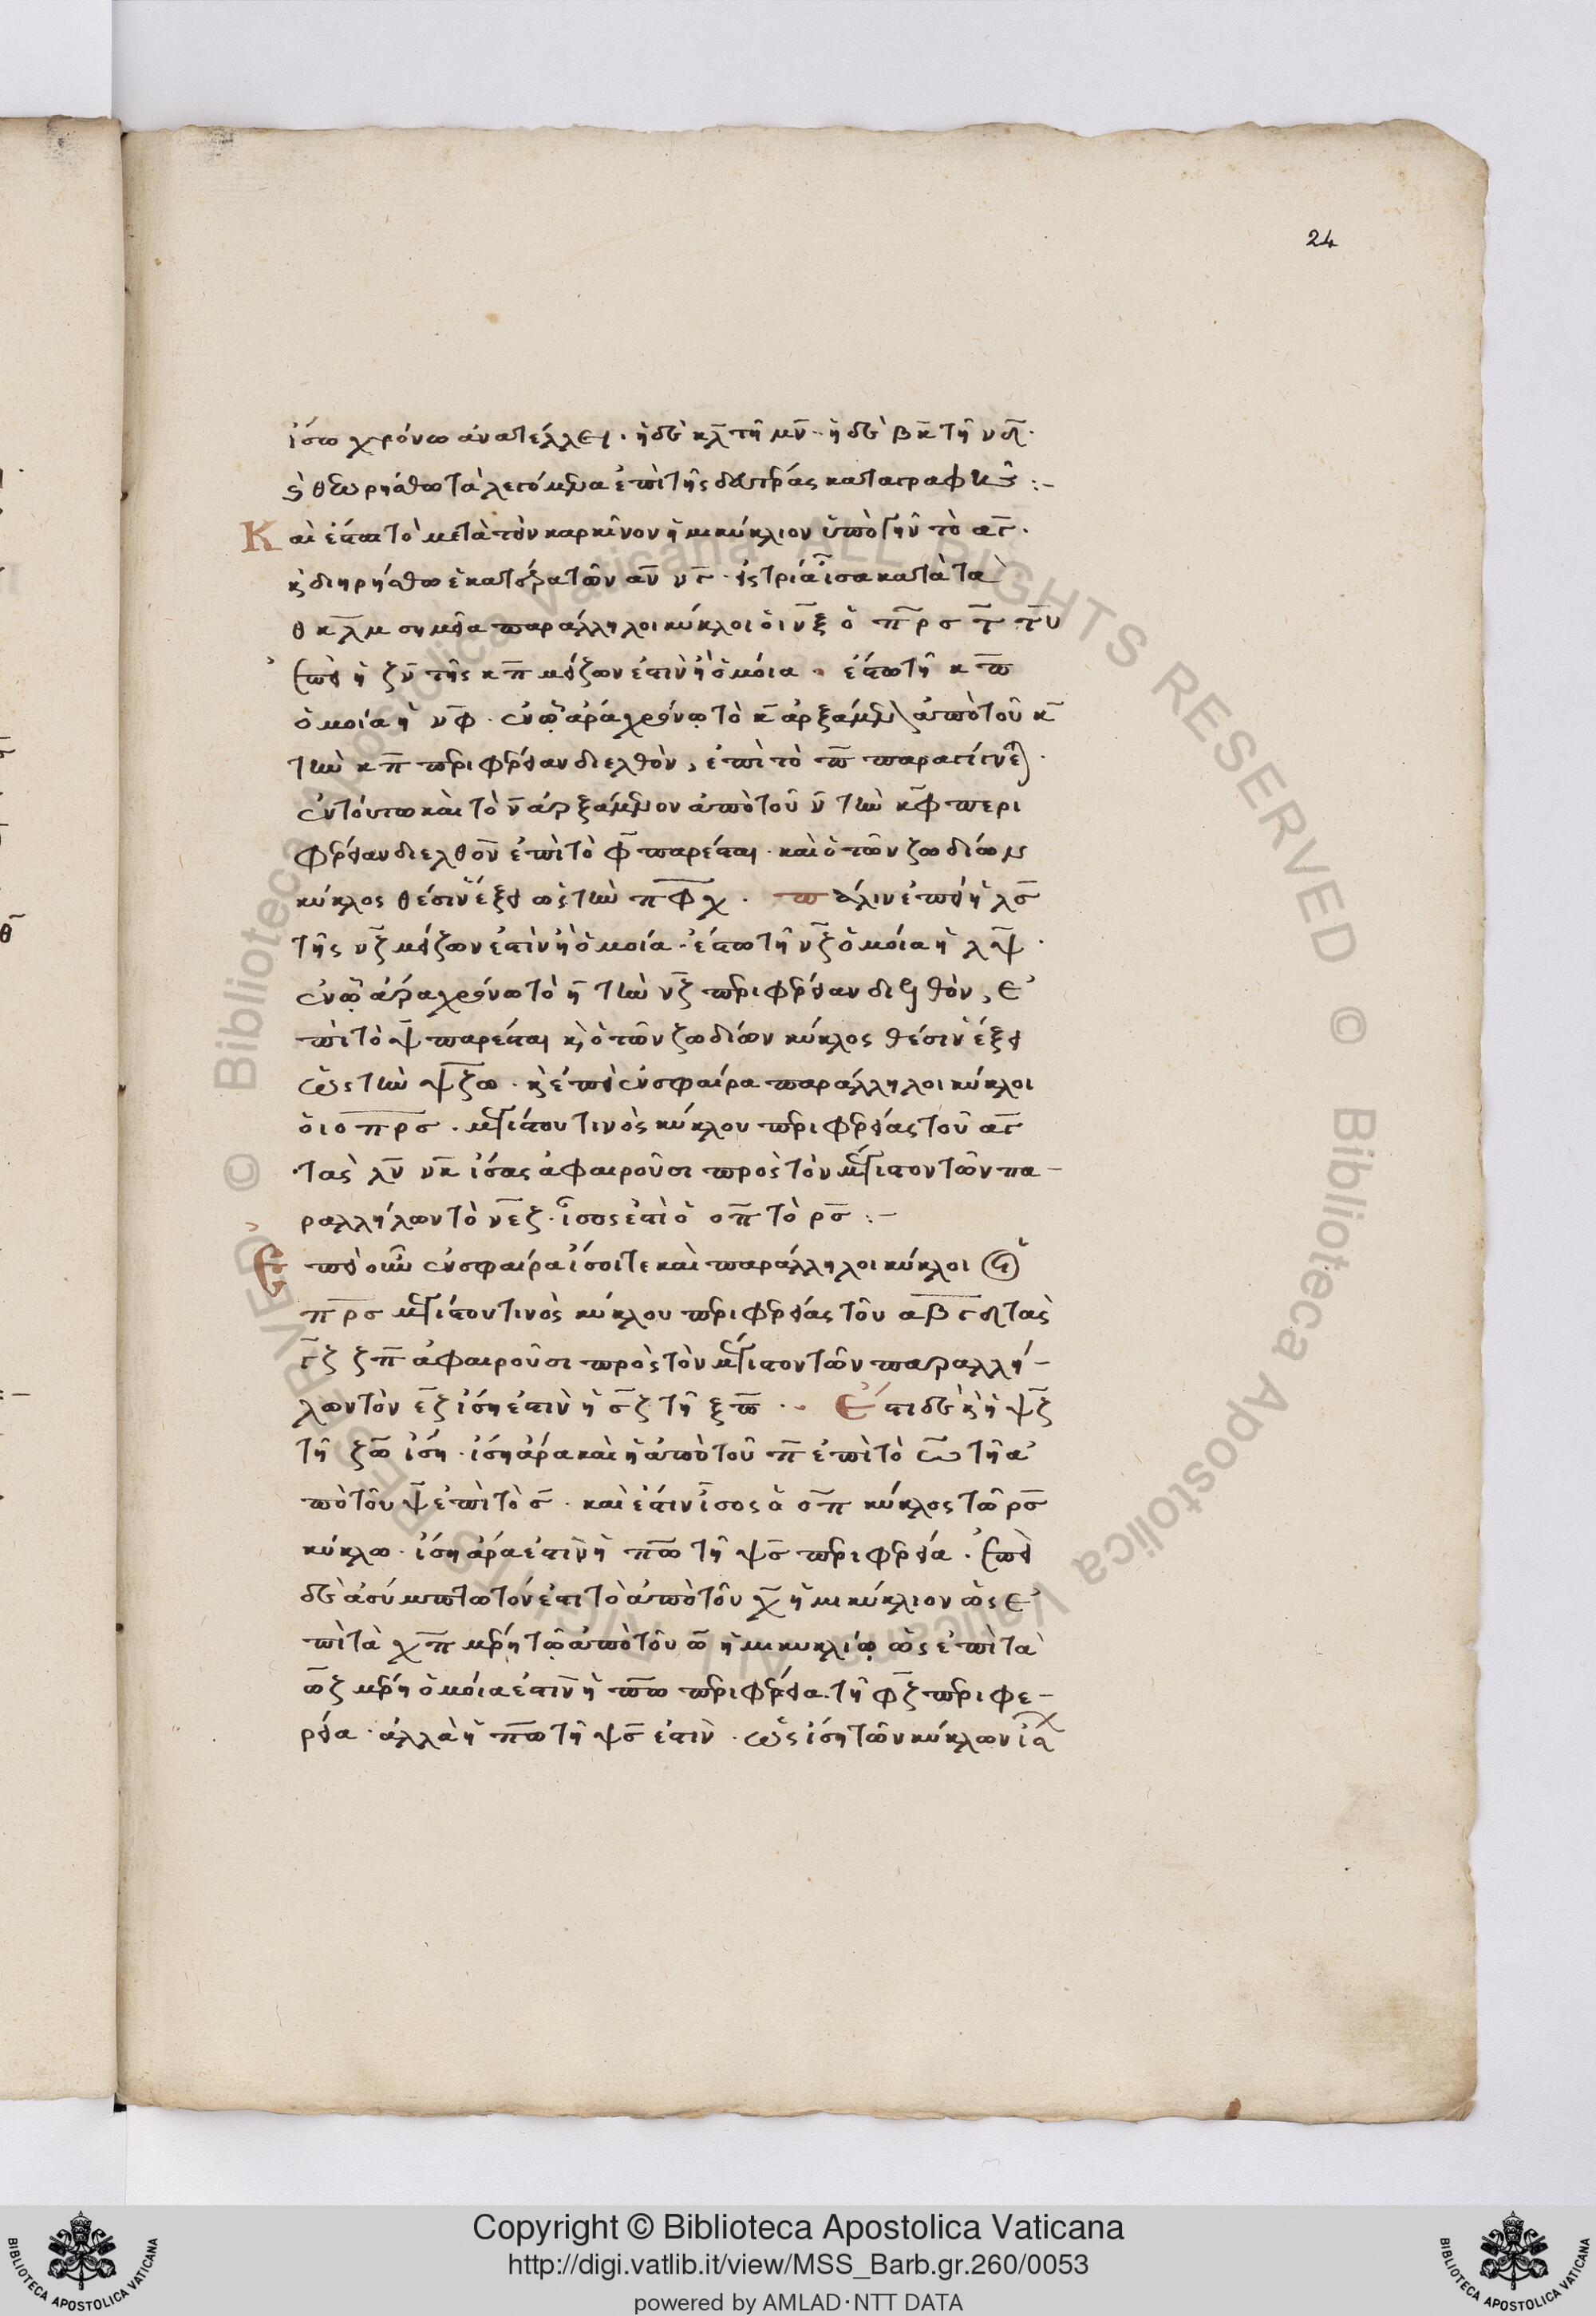 24
ἴσω χρόνω ἀνατέλλει. ἡ δὲ κλ τῆ μν. ἡ δὲ βκ τῆ νδ.
καὶ θεωρήσθω τὰ λεγόμενα ἐπὶ τῆς δευτέρας καταγραφῆς :-
Καὶ ἔσται τὸ μετὰ τὸν καρκῖνον ἡμικύκλιον ὑπὸ γῆν τὸ αγ.
καὶ διηρήσθω ἑκατέρα τῶν αν νγ εἰς τρία ἴσα κατὰ τὰ
θ κ λ μ σημεῖα παράλληλοι κύκλοι οἱ νξ ο πρσ τ τυ
ἐπεὶ ἡ ζν τῆς κπ μείζων ἐστὶν ἢ ὁμοία. ἔστω τῆ κπ
ὁμοία ἡ νφ. ἐν ᾧ ἄρα χρόνῳ τὸ κ ἀρξάμενον ἀπὸ τοῦ κ
τὴν κπ περιφέρειαν διελθὸν, ἐπὶ τὸ π παραγίνεται.
ἐν τούτω καὶ τὸ ν ἀρξάμενον ἀπὸ τοῦ ν τὴν κφ περι
φέρειαν διελθὸν ἐπὶ τὸ φ παρέσται. καὶ ὁ τῶν ζωδίων
κύκλος θέσιν ἕξει ὡς τὴν πφχ. πάλιν ἐπεὶ ἡ λσ
τῆς νζ μείζων ἐστὶν ἢ ὁμοία. ἔστω τῆ νζ ὁμοία ἡ λψ.
ἐν ᾧ ἄρα χρόνω τὸ η τὴν νζ περιφέρειαν διελθὸν, ἐ
πὶ τὸ ψ παρέσται καὶ ὁ τῶν ζωδίων κύκλος θέσιν ἕξει
ὡς τὴν ψζω. καὶ ἐπεὶ ἐν σφαίρα παράλληλοι κύκλοι
οἱ οπρσ. μεγίστου τινὸς κύκλου περιφερείας τοῦ αγ
τὰς λν νκ ἴσας ἀφαιροῦσι πρὸς τὸν μέγιστον τῶν πα-
ραλλήλων τὸ νεζ. ἴσος ἐστὶ ὁ οπ τὸ ρσ :-
Ἐπεὶ οὖν ἐν σφαίρα ἴσοι τε καὶ παράλληλοι κύκλοι οἱ
πρσ μεγίστου τινὸς κύκλου περιφερείας τοῦ αβγδ τὰς
γζ ζπ ἀφαιροῦσι πρὸς τὸν μέγιστον τῶν παραλλή-
λων τὸν εζ ἴση ἐστὶν ἡ σζ τῆ ξπ. Ἔστι δὲ καὶ ἡ ψζ
τῆ ζω ἴση. ἴση ἄρα καὶ ἡ ἀπὸ τοῦ π ἐπὶ τὸ ω τῆ ἀ
πὸ τοῦ ψ ἐπὶ τὸ σ. καὶ ἔστιν ἴσος ὁ οπ κύκλος τῶ ρσ
κύκλω. ἴση ἄρα ἐστὶν ἡ πω τῆ ψσ περιφερεία. ἐπεὶ
δὲ ἀσύμπτωτόν ἐστι τὸ ἀπὸ τοῦ χ ἡμικύκλιον ὡς ἐ
πὶ τὰ χπ μέρη τῷ ἀπὸ τοῦ ω ἡμικυκλίῳ ὡς ἐπὶ τὰ
ωζ μέρη ὁμοία ἐστὶν ἡ πω περιφέρεια τῆ φζ περιφε-
ρεία. ἀλλὰ ἡ πω τῆ ψσ ἐστὶν. ὡς ἴση τῶν κύκλων
Copyright © Biblioteca Apostolica Vaticana
http://digi.vatlib.it/view/MSS_Barb.gr.260/0053
powered by AMLAD·NTT DATA
BIBLIOTECA APOSTOLICA VATICANA
BIBLIOTECA APOSTOLICA VATICANA
© Biblioteca Apostolica Vaticana ALL RIGHTS RESERVED
© Biblioteca Apostolica Vaticana ALL RIGHTS RESERVED